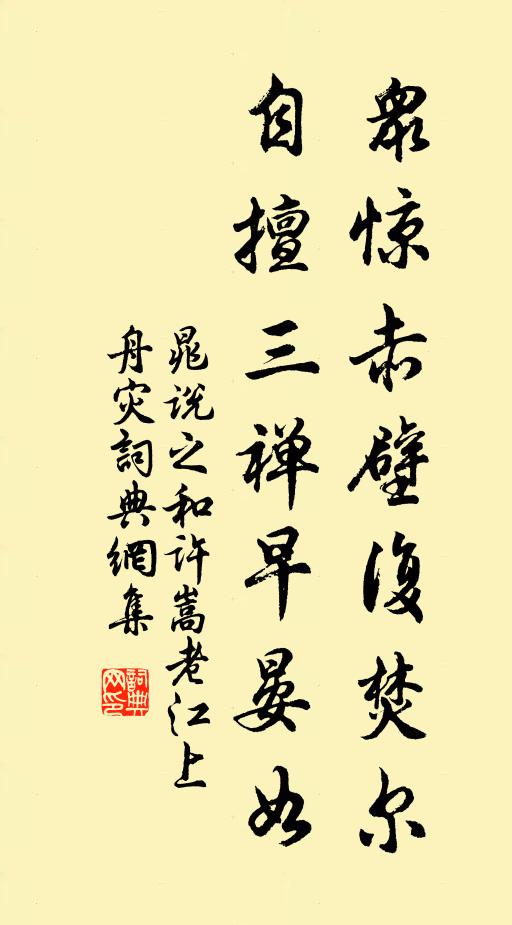 众惊赤壁復焚尔
自擅三禅早晏如
晁说之和许嵩老江上
舟灾詞典網集
詞典网印